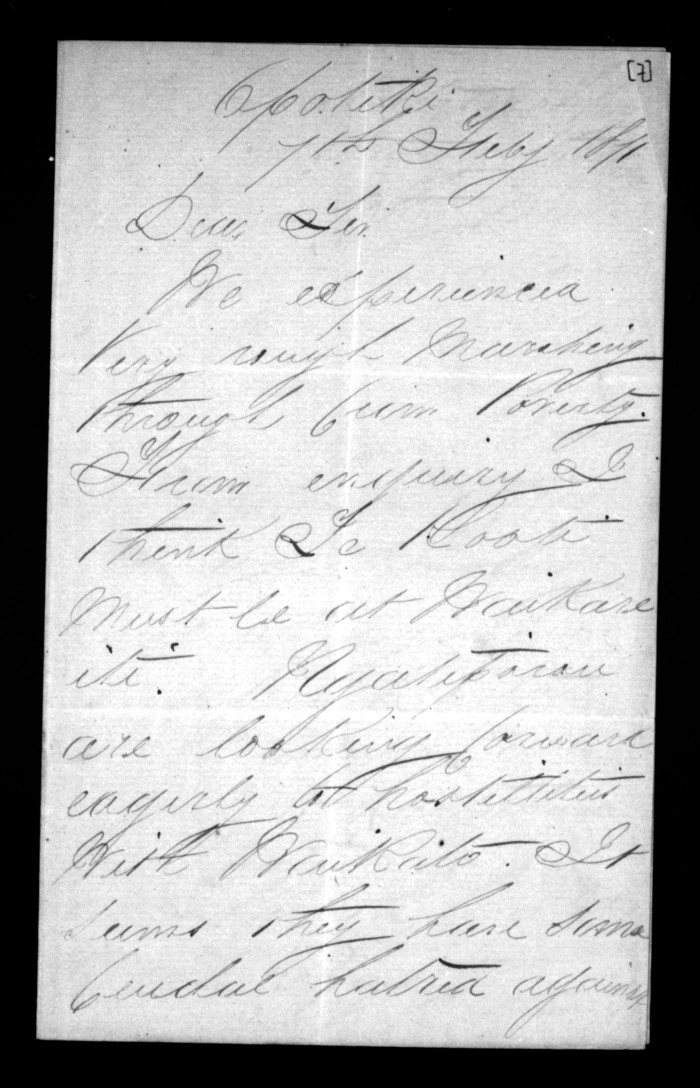 [7]
Opotiki
7th Feby 1871
Dear Sir
We experienced
very rough marching
through from Poverty.
From enquiry I
think Te Kooti
must be at Waikare
iti. Ngatiporou
are looking forward
eagerly to hostillities
with Waikato. It
seems they have some
feudal hatred against